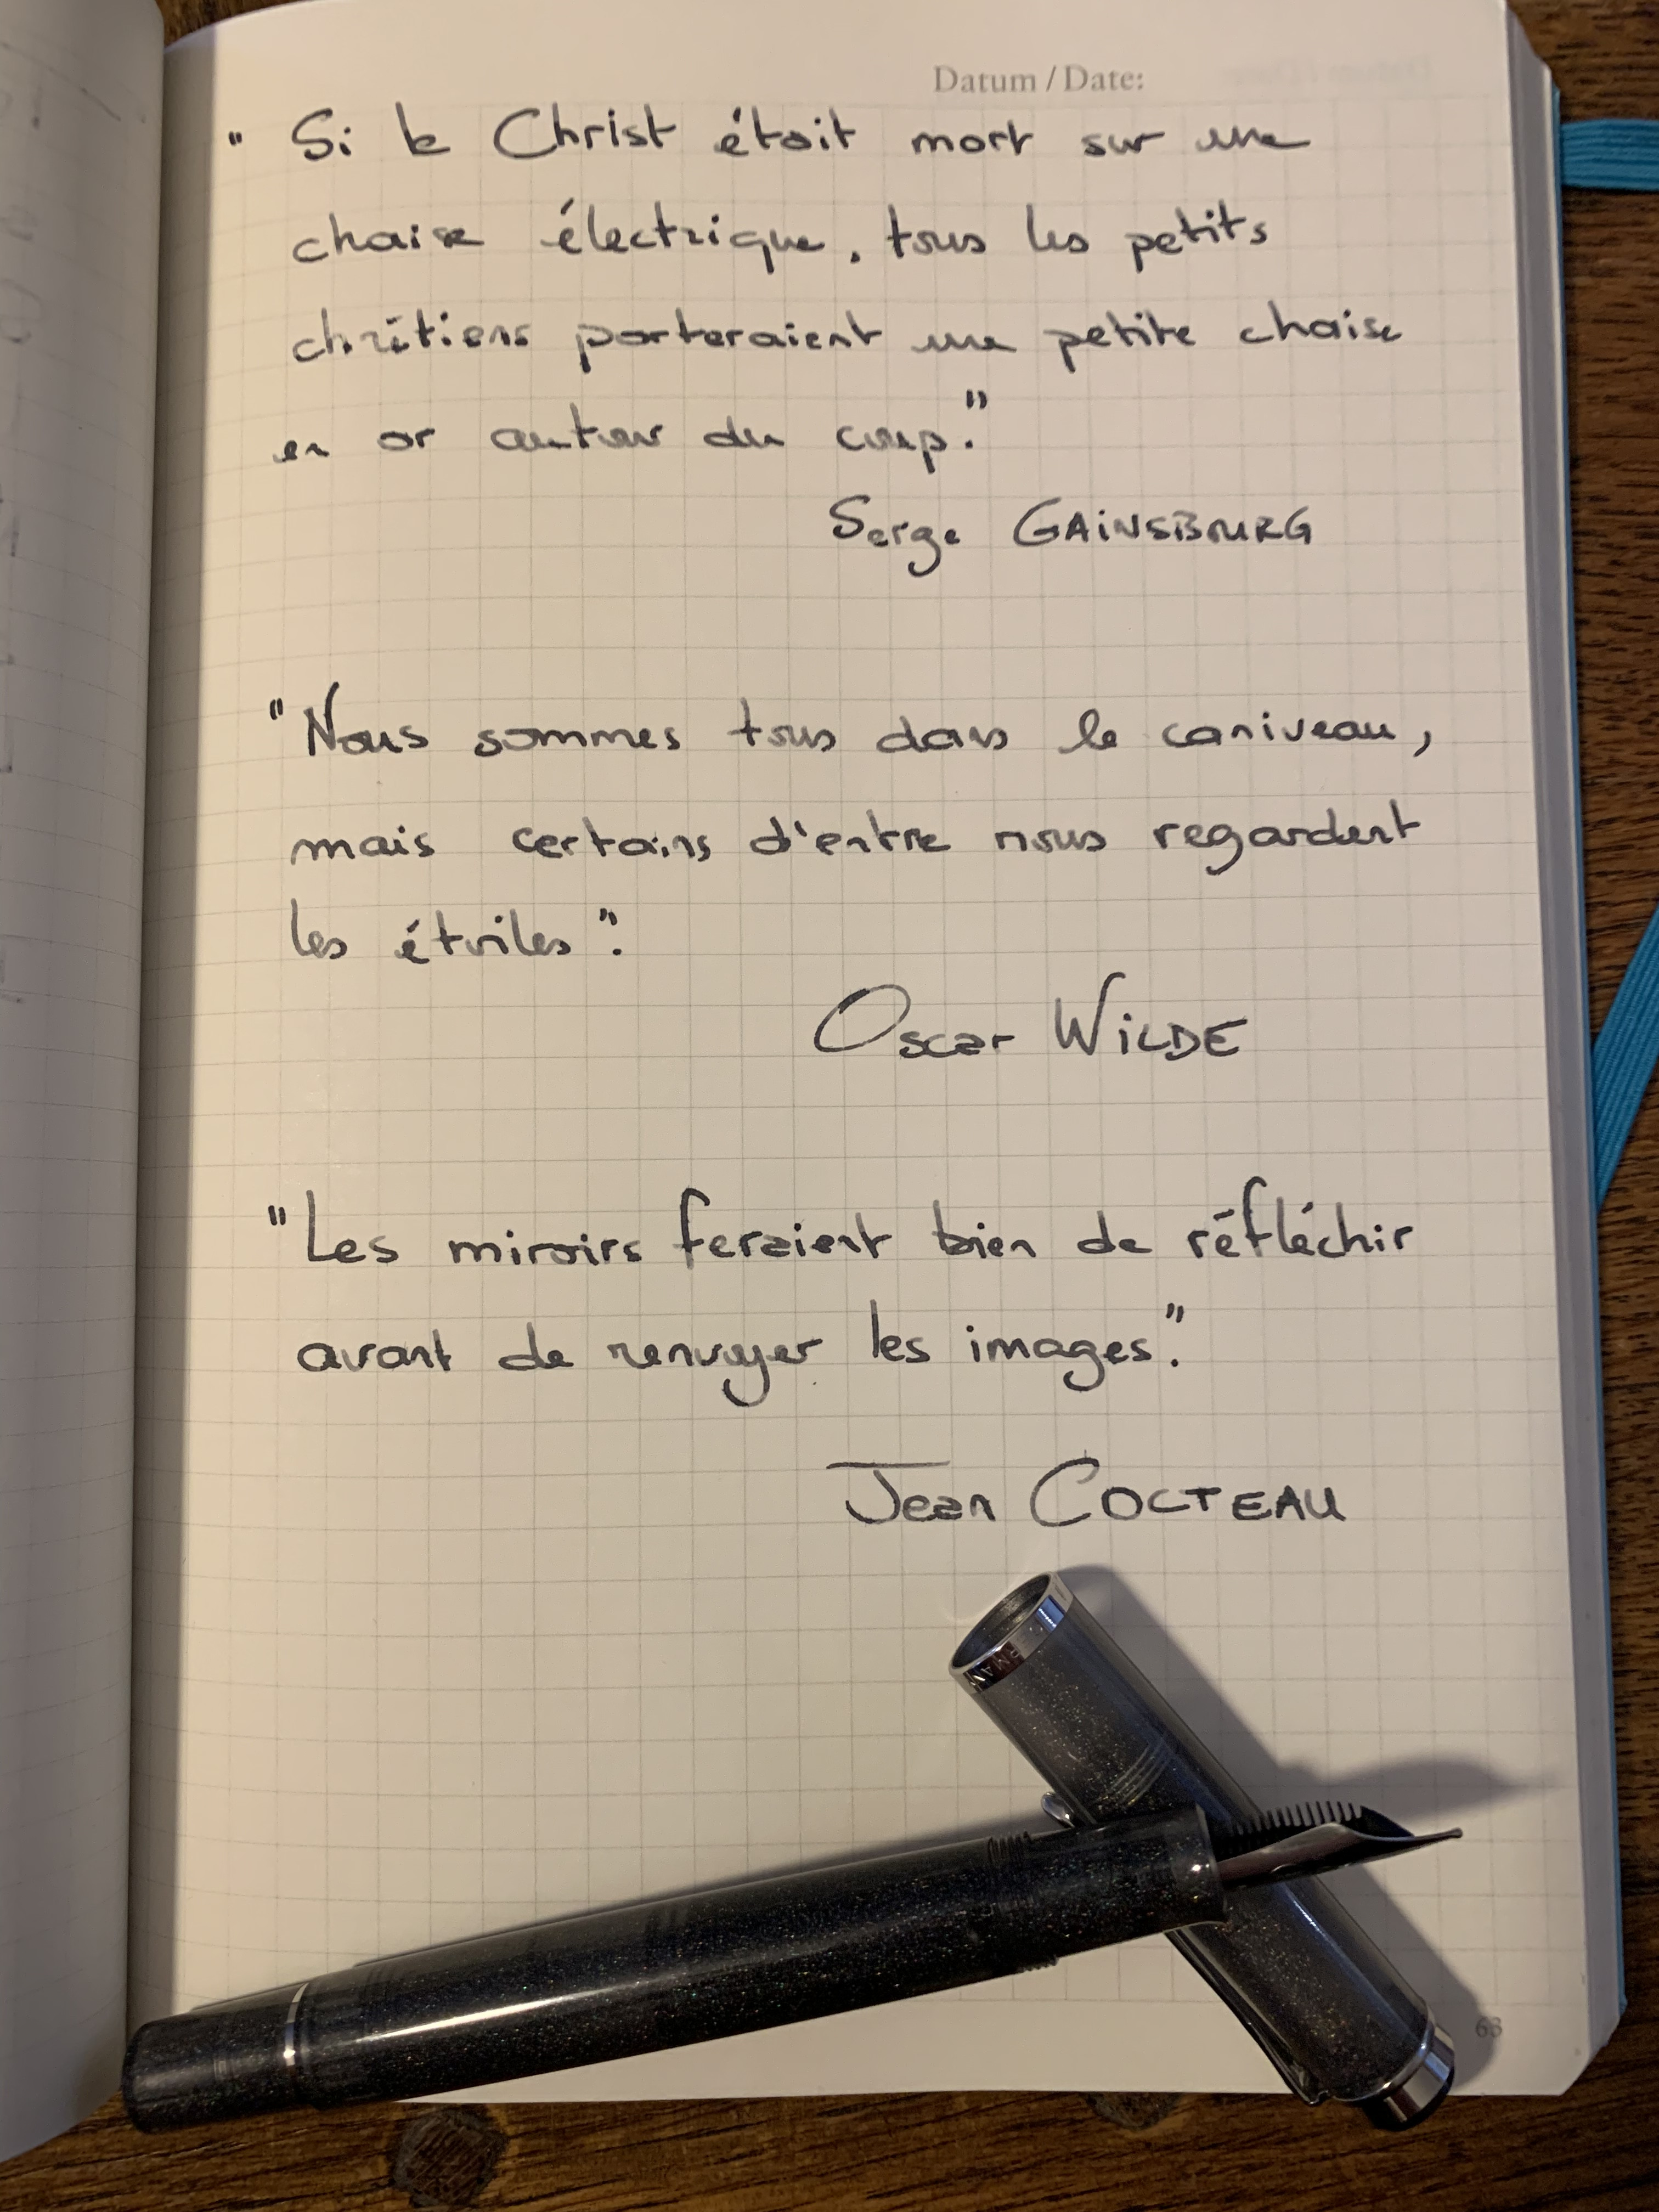 Datum / Date:
" Si le Christ était mort sur une
chaise électrique, tous les petits
chrétiens porteraient une petite chaise
en or autour du coup."
Serge GAINSBOURG
"Nous sommes tous dans le caniveau,
mais certains d'entre nous regardent
les étoiles".
Oscar WILDE
"Les miroirs feraient bien de réfléchir
avant de renvoyer les images."
Jean COCTEAU
63